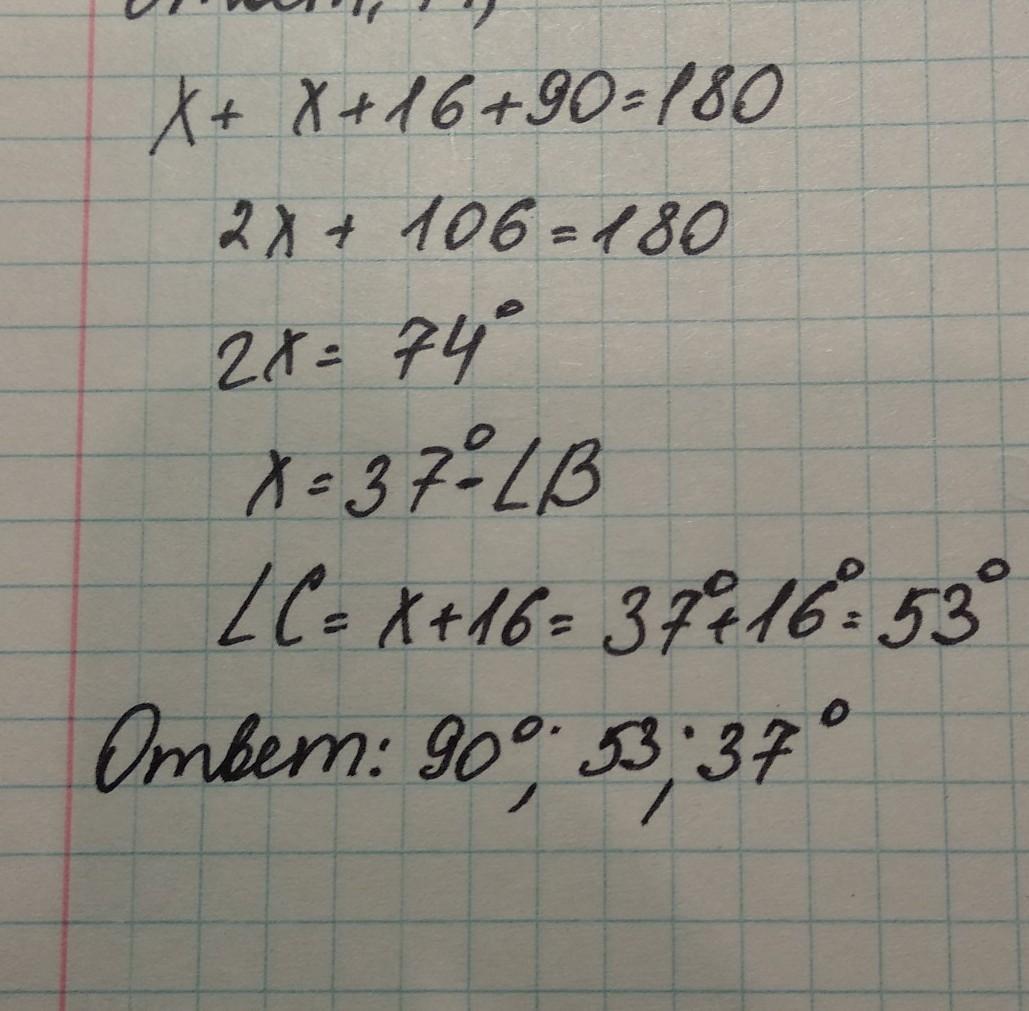 x + x + 16 + 90 = 180
2x + 106 = 180
2x = 74°
x = 37° - ∠B
∠C = x + 16 = 37° + 16° = 53°
Ответ: 90°; 53; 37°